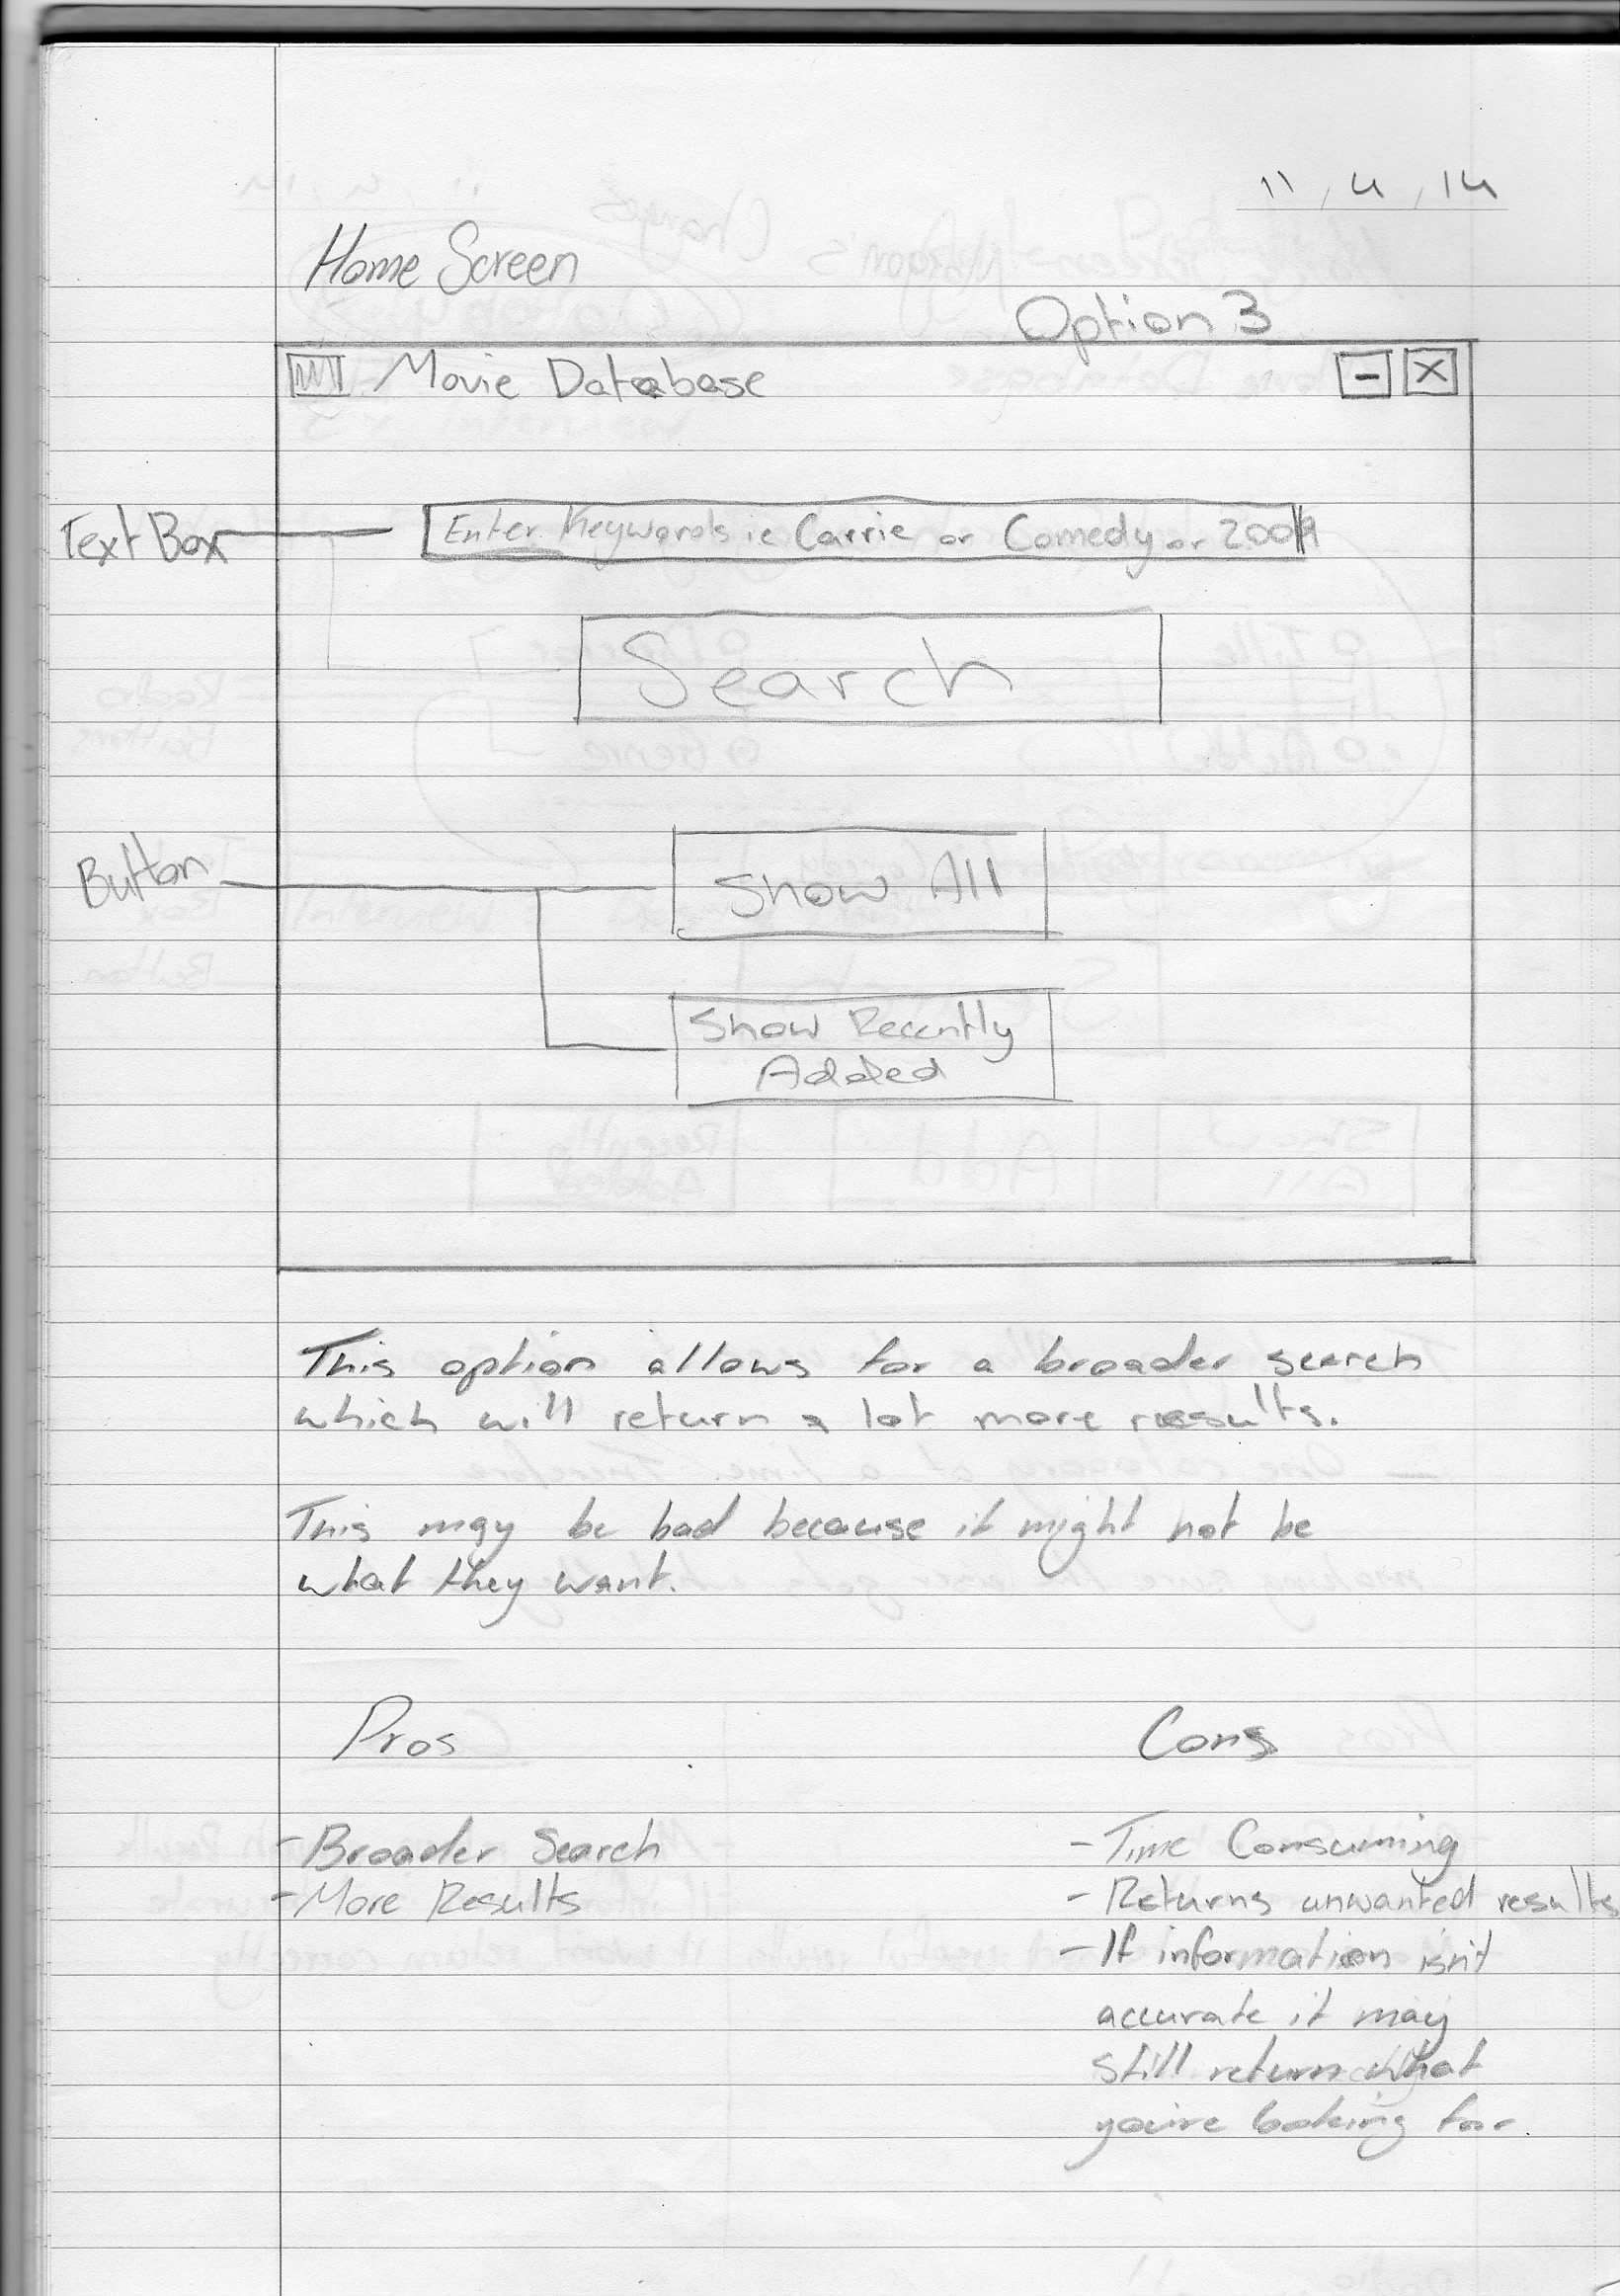 11, 4, 14
Home Screen
Option 3
Movie Database
Text Box
Enter Keywords ie Carrie or Comedy or 2009
Search
Button
Show All
Show Recently
Added
This option allows for a broader search
which will return a lot more results.
This may be bad because it might not be
what they want.
Pros
Cons
- Broader Search
- More Results
- Time Consuming
- Returns unwanted results
- If information isn't
accurate it may
still return what
you're looking for.